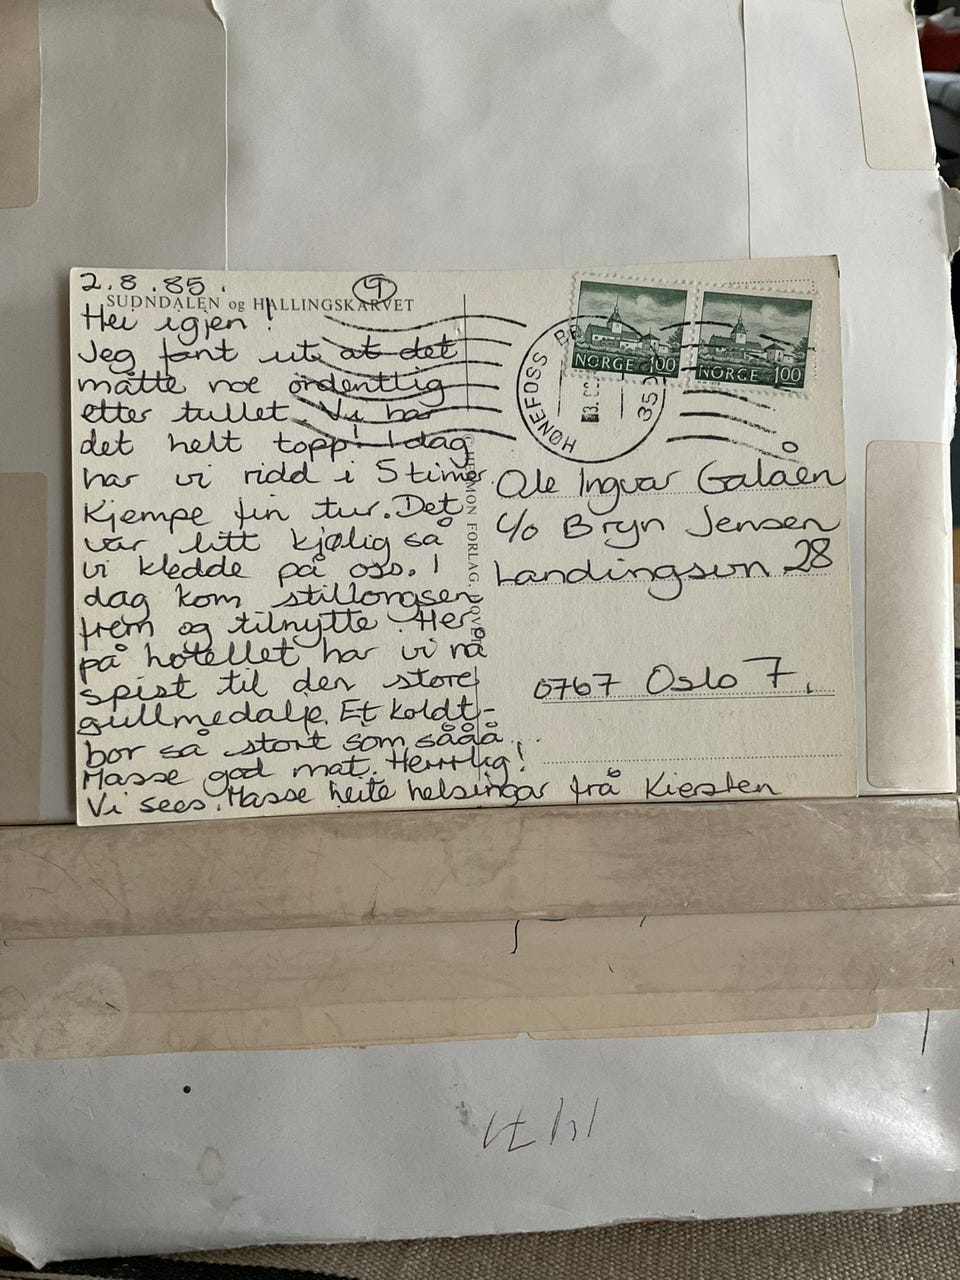 2.8.85.
9
SUDNDALEN og HALLINGSKARVET
Hei igjen!
Jeg fant ut at det
måtte noe ordentlig
etter tullet. Vi har
det helt topp! Idag
har vi ridd i 5 timer.
Kjempe fin tur. Det
var litt kjølig så
vi kledde på oss. I
dag kom stillongsen
frem og tilnytte. Her
på hotellet har vi nå
spist til den store
gullmedalje. Et koldt-
bor så stort som sååå...
Masse god mat. Herrlig!
Vi sees. Masse heite helsingar frå Kiersten
HERMON FORLAG.
HØNEFOSS
NORGE 100
NORGE 100
Ole Ingvar Galåen
c/o Bryn Jensen
Landingsvn 28
0767 Oslo 7.